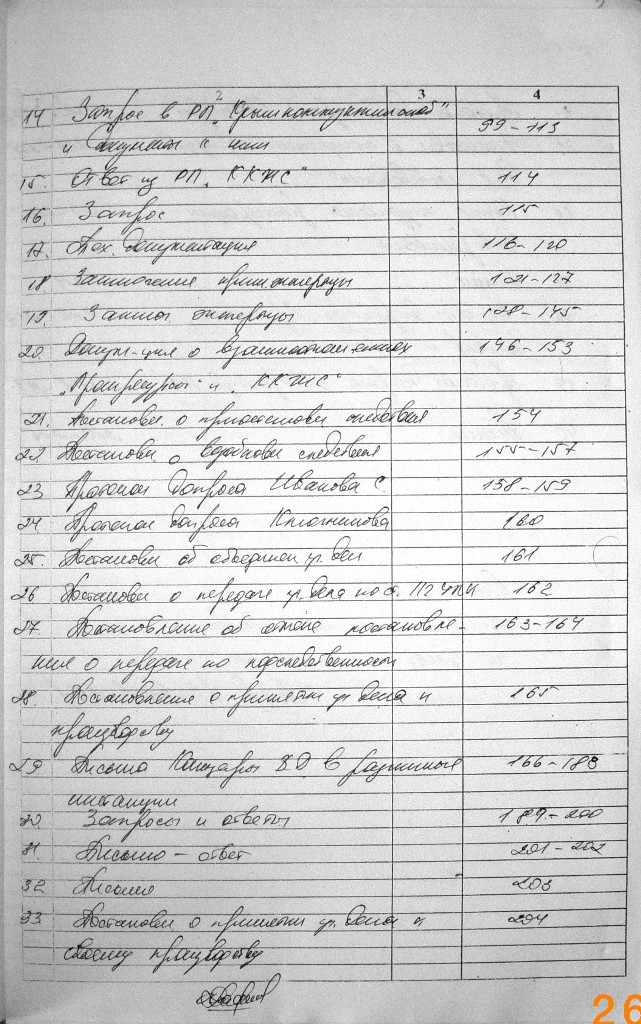 2 3 4
14 Запрос в РП „Крымкоммунжилсоб"
и документы к ним 99-113
15. Ответ из РП „ККЖС" 114
16. Запрос 115
17. Тех. документация 116-120
18. Заключение экспертизы 121-127
19. Заключ экспертизы 128-145
20. Докум-ция о взаимоотношениях 146-153
„ и „ККЖС"
21. Постановл. о приостановл следствия 154
22. Постановл. о возобновл следствия 155-157
23 Протокол допроса Иванова С. 158-159
24. Протокол допроса 160
25. Постановл об объединен уг. дел 161
26 Постановл о передаче уг. дела по ст. 112 УПК 162
27 Постановление об отмене постановле- 163-164
ния о передаче по подследственности
28. Постановление о принятии уг дела к 165
производству
29 Письма в различные 166-188
инстанции
30. Запросы и ответы 189-200
31. Письмо - ответ 201-202
32. Письмо 203
33. Постановл о принятии уг. дела к 204
своему производству
26